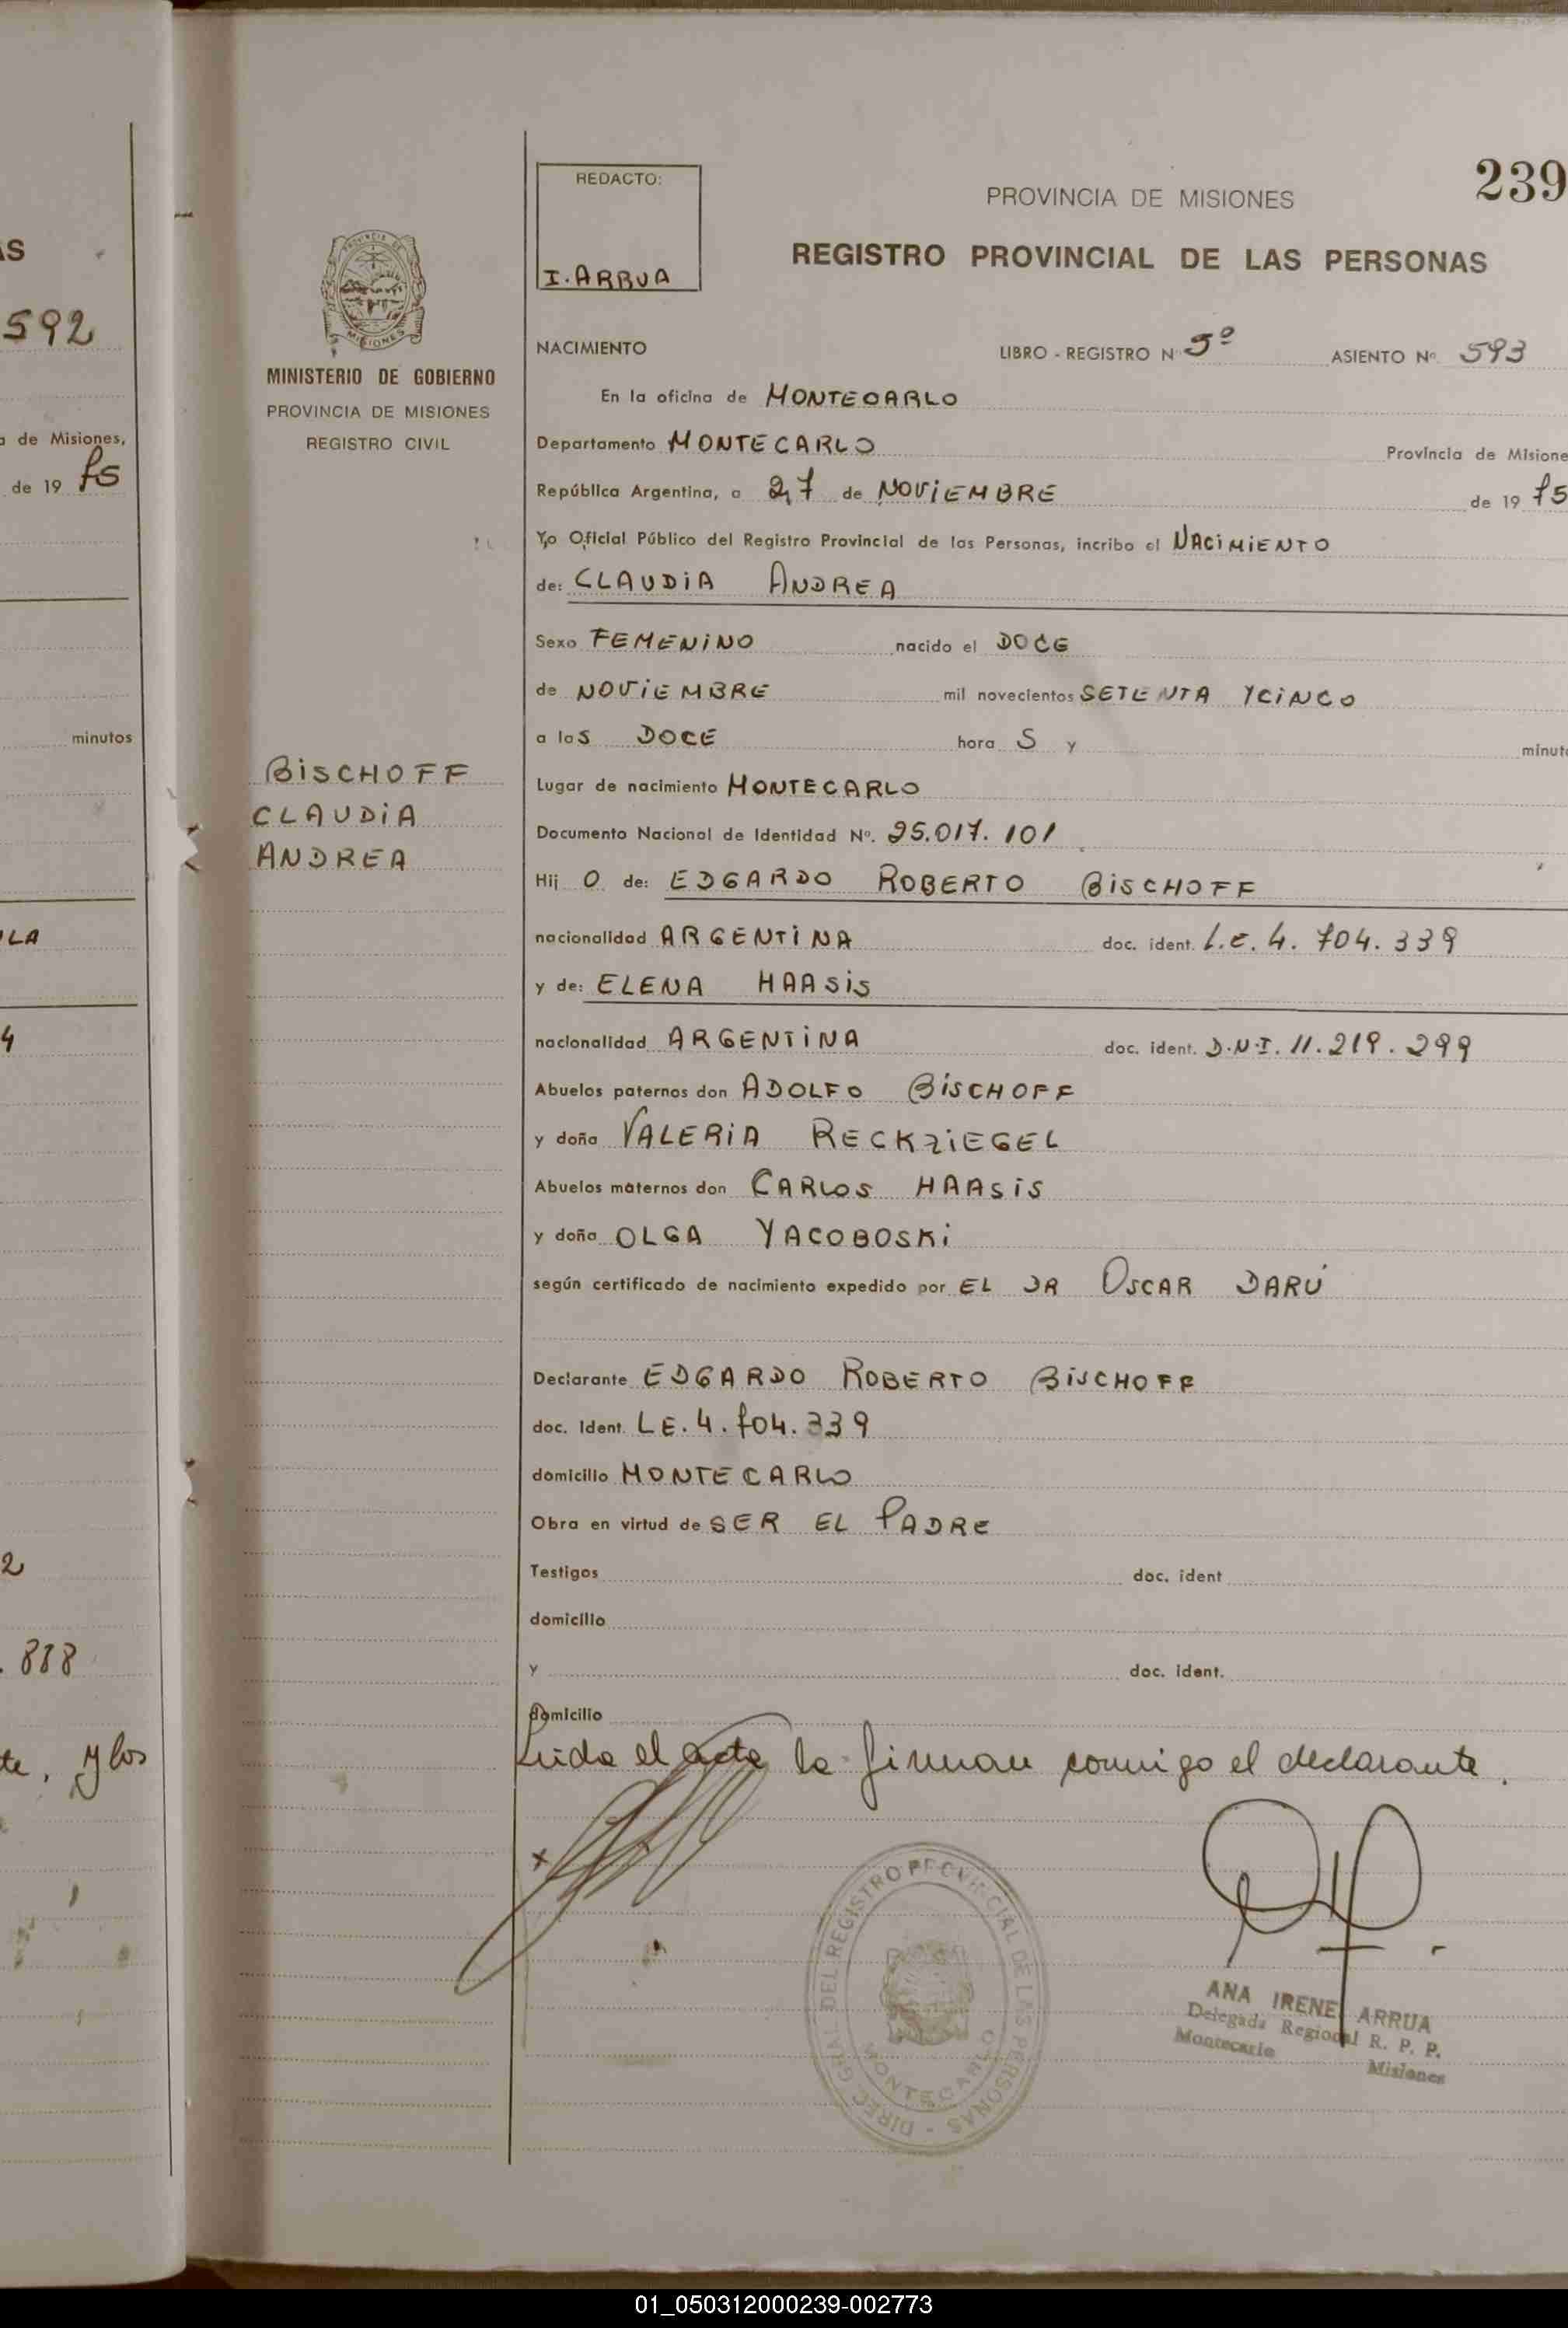 AS
592
a de Misiones,
de 19 75
minutos
ULA
4
2
. 888
te, y los
239
REDACTO:
I. ARRUA
PROVINCIA DE MISIONES
REGISTRO PROVINCIAL DE LAS PERSONAS
PROVINCIA DE
MISIONES
MINISTERIO DE GOBIERNO
PROVINCIA DE MISIONES
REGISTRO CIVIL
BISCHOFF
CLAUDIA
ANDREA
NACIMIENTO LIBRO - REGISTRO N 5º ASIENTO Nº 593
En la oficina de MONTECARLO
Departamento MONTECARLO Provincia de Misione
República Argentina, a 27 de NOVIEMBRE de 19 75
Yo Oficial Público del Registro Provincial de las Personas, incribo el NACIMIENTO
de: CLAUDIA ANDREA
Sexo FEMENINO nacido el DOCE
de NOVIEMBRE mil novecientos SETENTA Y CINCO
a las DOCE hora S y minuto
Lugar de nacimiento MONTECARLO
Documento Nacional de Identidad Nº. 25.017.101
Hij O de: EDGARDO ROBERTO BISCHOFF
nacionalidad ARGENTINA doc. ident. L.E. 4.704.339
y de: ELENA HAASIS
nacionalidad ARGENTINA doc. ident. D.N.I. 11.219.299
Abuelos paternos don ADOLFO BISCHOFF
y doña VALERIA RECKZIEGEL
Abuelos maternos don CARLOS HAASIS
y doña OLGA YACOBOSKI
según certificado de nacimiento expedido por EL DR OSCAR DARÚ
Declarante EDGARDO ROBERTO BISCHOFF
doc. Ident. LE. 4.704.339
domicilio MONTECARLO
Obra en virtud de SER EL PADRE
Testigos doc. ident
domicilio
y doc. ident.
domicilio
Leida el acta la firman conmigo el declarante.
DIREC. GRAL DEL REGISTRO PROVINCIAL DE LAS PERSONAS -
MONTECARLO
ANA IRENE ARRUA
Delegada Regional R. P. P.
Montecarlo Misiones
01_050312000239-002773